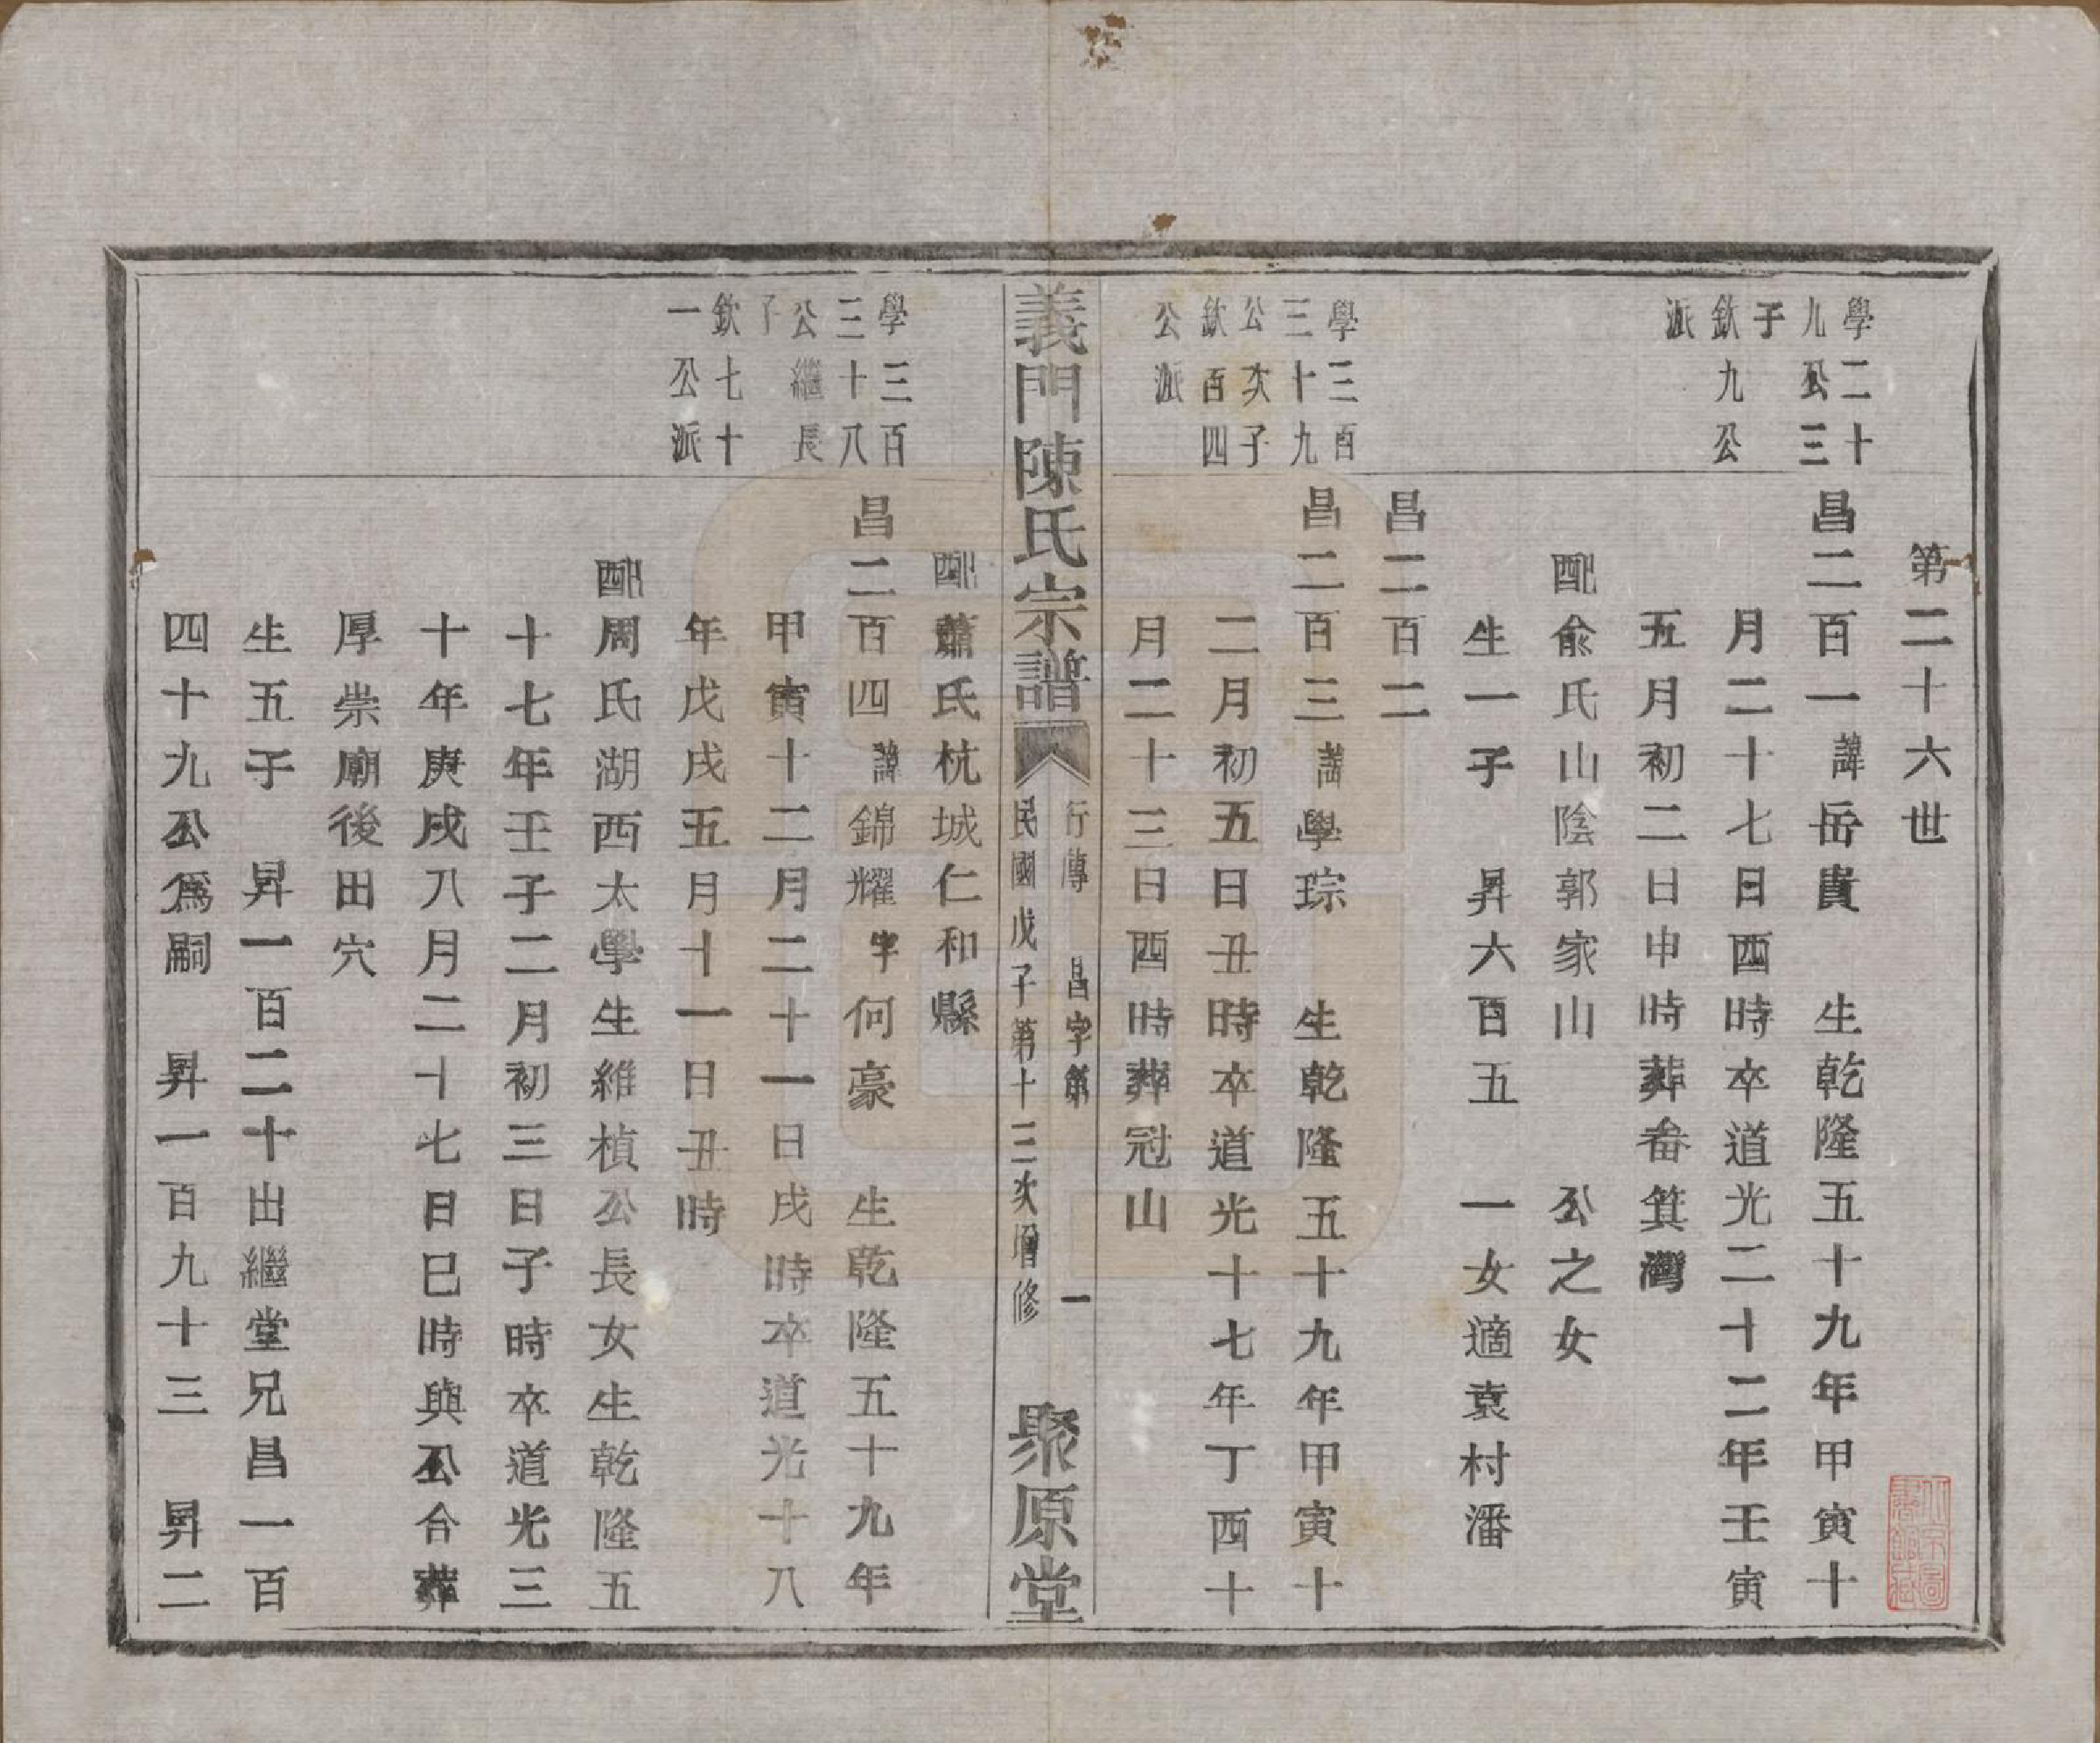 第二十六世
學二十
九公三
子
欽九公
派
昌二百一諱岳貴　生乾隆五十九年甲寅十
月二十七日酉時卒道光二十二年壬寅
五月初二日申時葬畚箕灣
配俞氏山陰郭家山　公之女
生一子　昇六百五　一女適袁村潘
昌二百二
學三百
三十九
公次子
欽百四
公派
昌二百三諱學琮　生乾隆五十九年甲寅十
二月初五日丑時卒道光十七年丁酉十
月二十三日酉時葬冠山
義門陳氏宗譜
行傳　昌字第　一
民國戊子第十三次增修
聚原堂
配蕭氏杭城仁和縣
學三百
三十八
公繼長
子
欽七十
一公派
昌二百四諱錦耀字何豪　生乾隆五十九年
甲寅十二月二十一日戌時卒道光十八
年戊戌五月十一日丑時
配周氏湖西太學生維楨公長女生乾隆五
十七年壬子二月初三日子時卒道光三
十年庚戌八月二十七日巳時與公合葬
厚崇廟後田穴
生五子　昇一百二十出繼堂兄昌一百
四十九公爲嗣　昇一百九十三　昇二